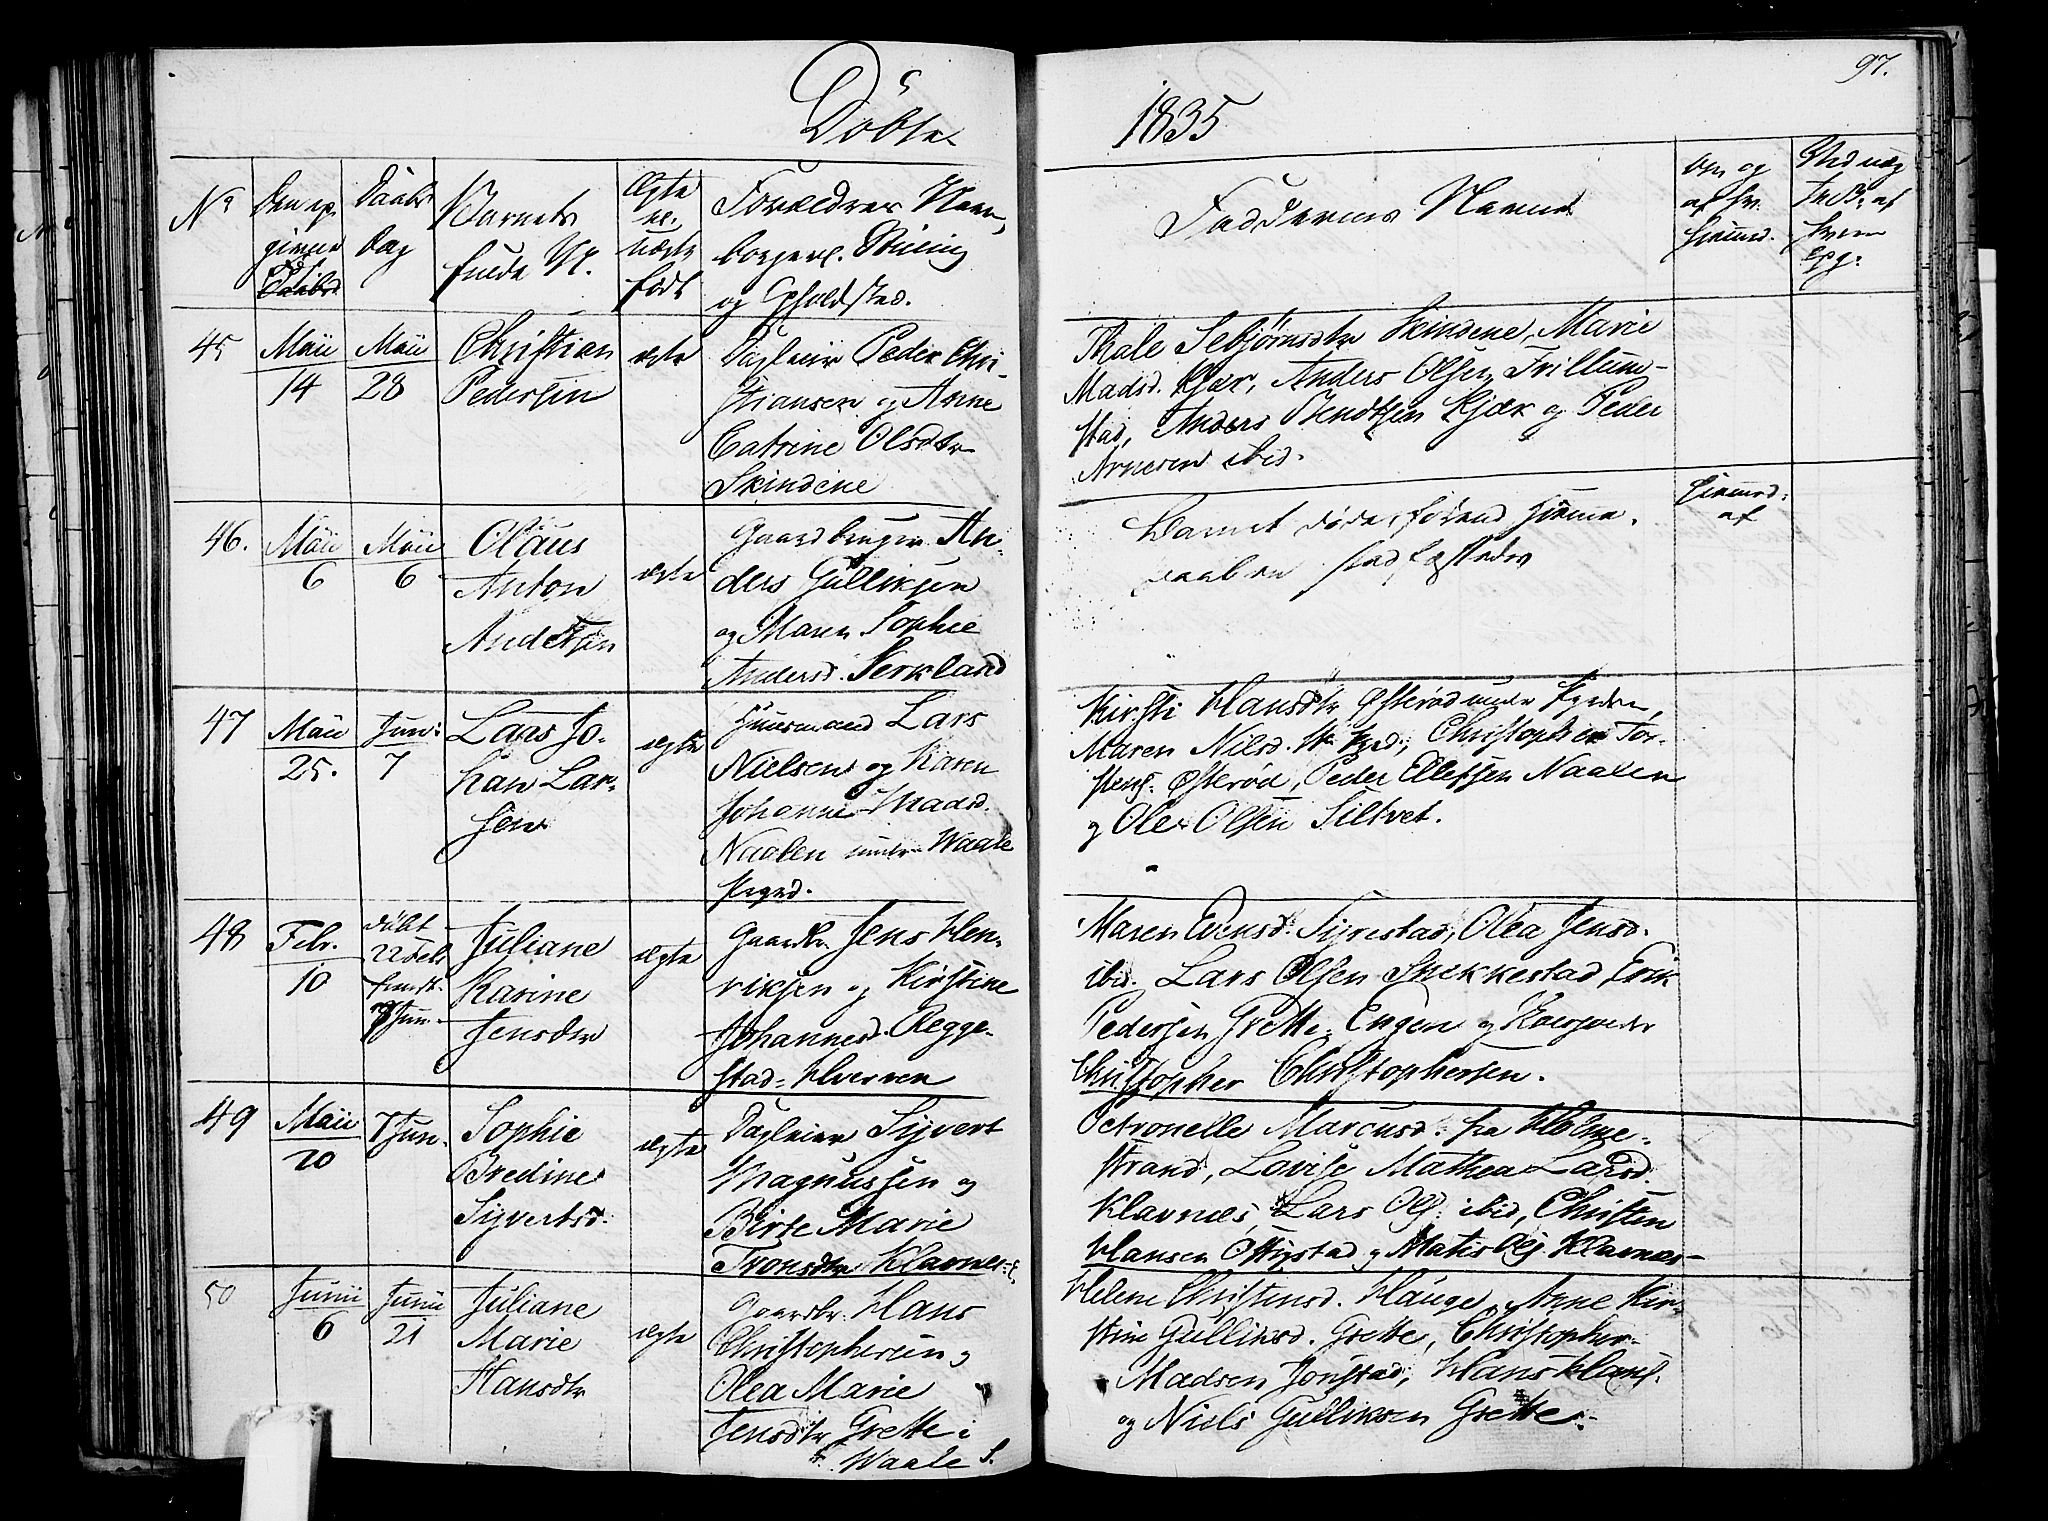 97.
Döbte
1835
No
Den op
givne
Daabs
Dag
Barnets
fulde N.
Ægte
el.
uægte
født
Forældres Navn,
borgerl. Stilling
og Opholdsted.
Faddernes Navne
Om og
af hv.
hiemd.
45
Maii
14
Maii
28
Christian
Pedersen
ægte
Dagleier Peder Chri-
stiansen og Anne
Catrine Olsdtr
Skindene
Thale Sebjørnsdtr Skindene, Marie
Madsd. Kjær, Anders Olsen Trillum-
stad, Anders Bendtsen Kjær og Peder
Arnesen ibid.
46.
Maii
6
Maii
6
Olaus
Anton
Andersen
ægte
Gaardbruger An-
ders Gulliksen
og Maren Sophie
Andersd. Serkland
Barnet døde førend hiemme-
daaben stadfæstedes
hiemd:
af
47
Maii
25.
Juni
7
Lars Jo-
han Lar-
sen
ægte
Huusmand Lars
Nielsen og Karen
Johanne Madsd.
Naalen under Waale
Prgrd.
Kirsti Hansdtr Østerød under
Maren Nilsd. Christopher Tor-
stens. Østerød, Peder Ellefsen Naalen
og Ole Olsen Siltvet.
48
Febr.
10
døbt
22 Feb
fremst.
7 Jun.
Juliane
Karine
Jensdtr
ægte
Gaardbr. Jens Hen-
riksen og Kirstine
Johannesd. Regge-
stad-Hverven
Maren Evensd. Syrestad, Olea Jensd.
ibid. Lars Olsen Snekkestad, Erik
Pedersen Grette-Engen og
Christopher Christophersen.
49
Maii
20
7 Jun.
Sophie
Bredine
Syvertsd.
ægte
Dagleier Syvert
Magnussen og
Birte Marie
Tronsdtr Klavnes
Petronelle Marcusd. fra Holme-
strand, Lovise Mathea Larsd.
Klavnæs, Lars Ols. ibid, Christen
Hansen og Matis Ols Klavnæs
50
Junii
6
Junii
21
Juliane
Marie
Hansdtr
ægte
Gaardbr. Hans
Christophersen og
Olea Marie
Jensdtr Grette i
Waale S.
Helene Christensd. Hauge, Anne Kir-
stine Gulliksd. Grette, Christopher
Madsen Jonstad, Hans Hans.
og Niels Gulliksen Grette.